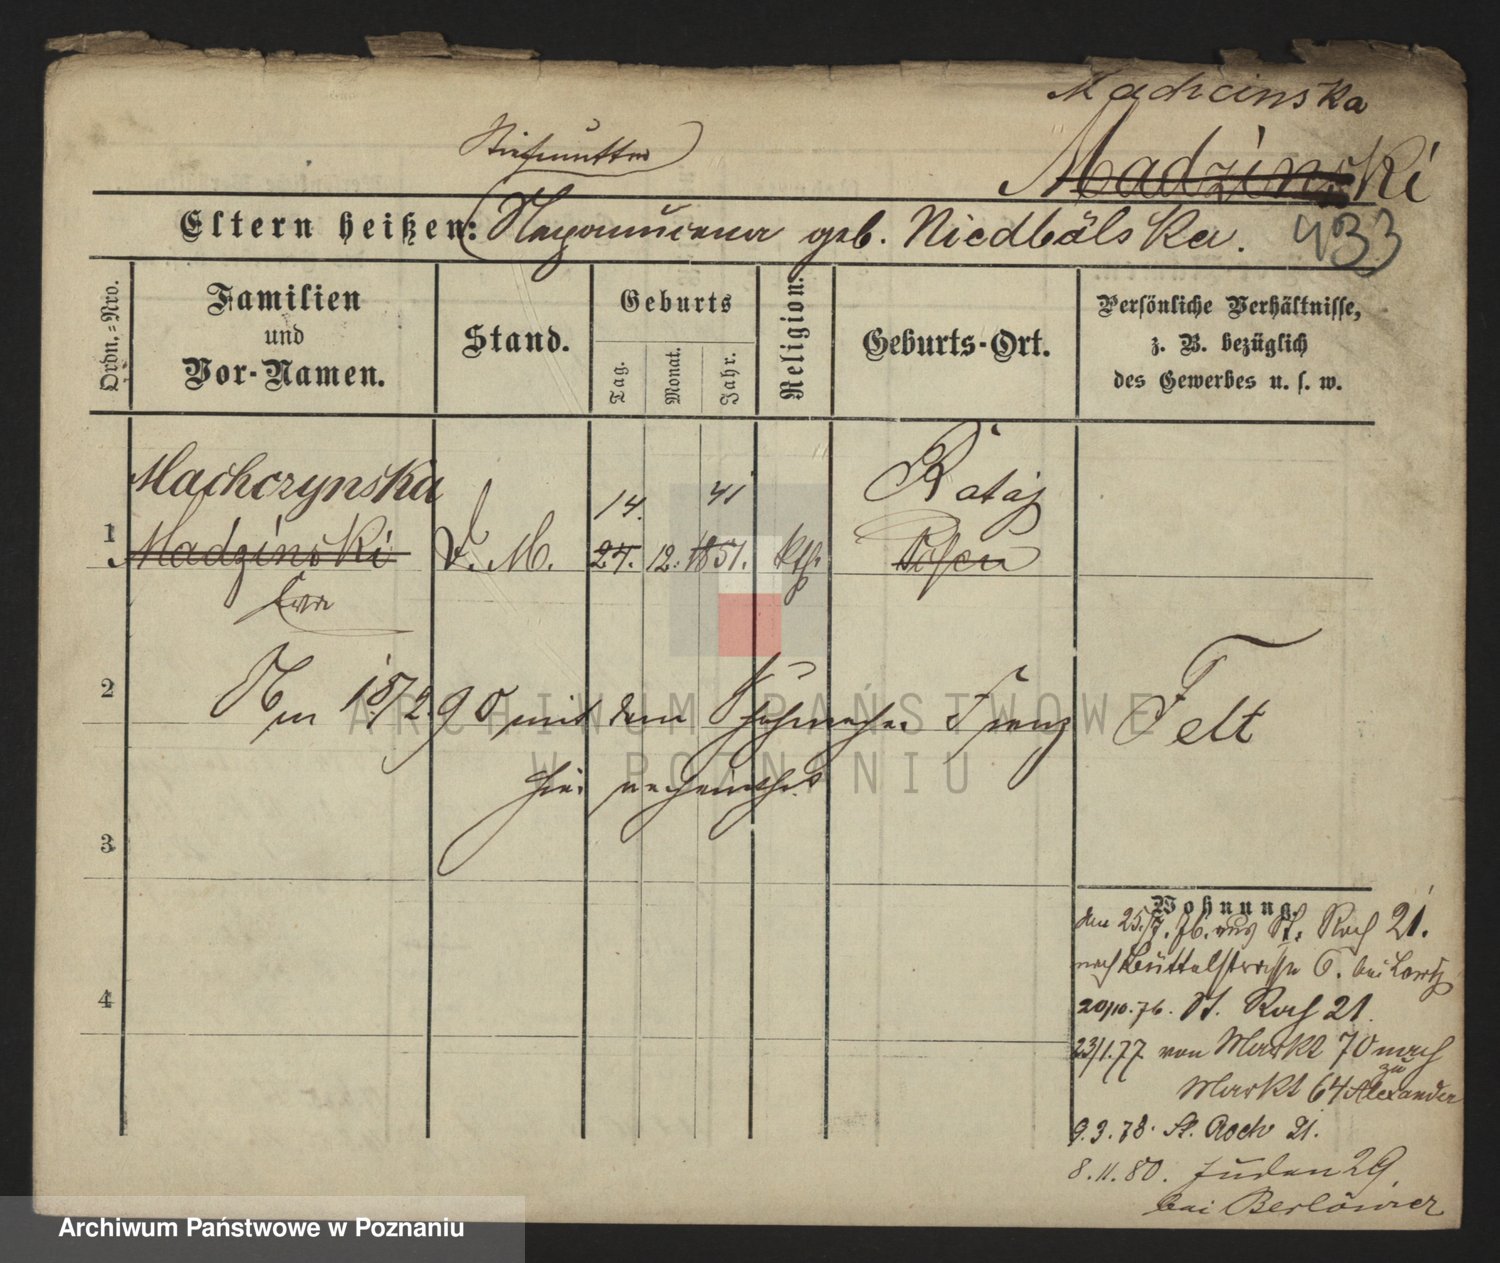 Madrcinska
Madzinski
Stiefmutter
Eltern heißen: Nepomucena geb. Niedbálska.
433
Ordn.-Nro.
Familien
und
Vor-Namen.
Stand.
Geburts
Tag.
Monat.
Jahr.
Religion.
Geburts-Ort.
Persönliche Verhältnisse,
z. B. bezüglich
des Gewerbes u. s. w.
Machczynska
14. 41 Rataj
1 Madzinski d. M. 24. 12. 1851. kth. Posen
Eva
2 Am 18/2 90 mit dem Schuhmacher Franz Felt
hier verheirathet
3
4
Wohnung.
den 25./7. 76. aus St. Roch 21.
nach Büttelstrasse 6. bei
20/10. 76. St. Roch 21.
23/1.77 von Markt 70 nach
Markt 64 zu Alexander
9.3.78. St. Roch 21.
8.11.80. Juden 29
bei Berlówier
ARCHIWUM PAŃSTWOWE
W POZNANIU
Archiwum Państwowe w Poznaniu